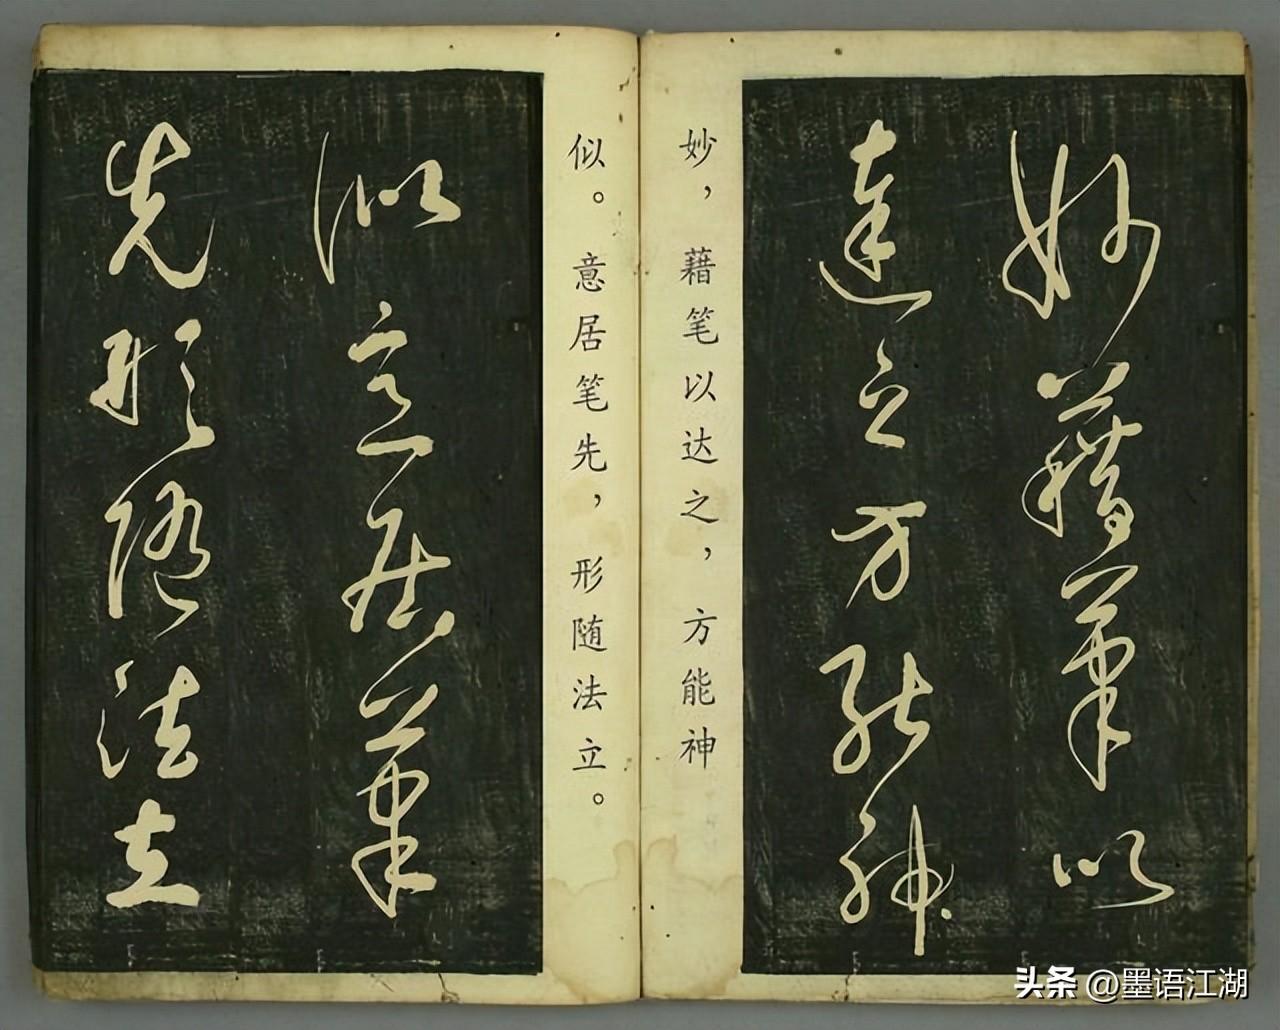 妙藉筆以
達之方能神
妙，藉笔以达之，方能神
似。意居笔先，形随法立。
似意居筆
先形随法立
头条 @墨语江湖